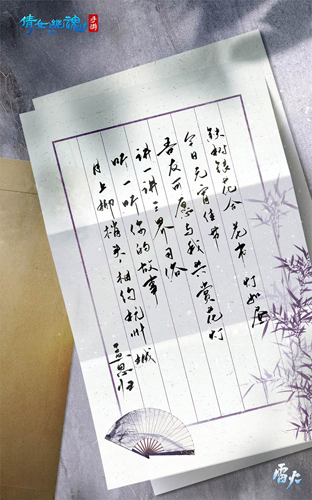 倩女幽魂
手游
铁树银花合 花市灯如昼
今日元宵佳节
吾友可愿与我共赏花灯
讲一讲三界习俗
听一听你的故事
月上柳梢头，相约杭州城
雷火